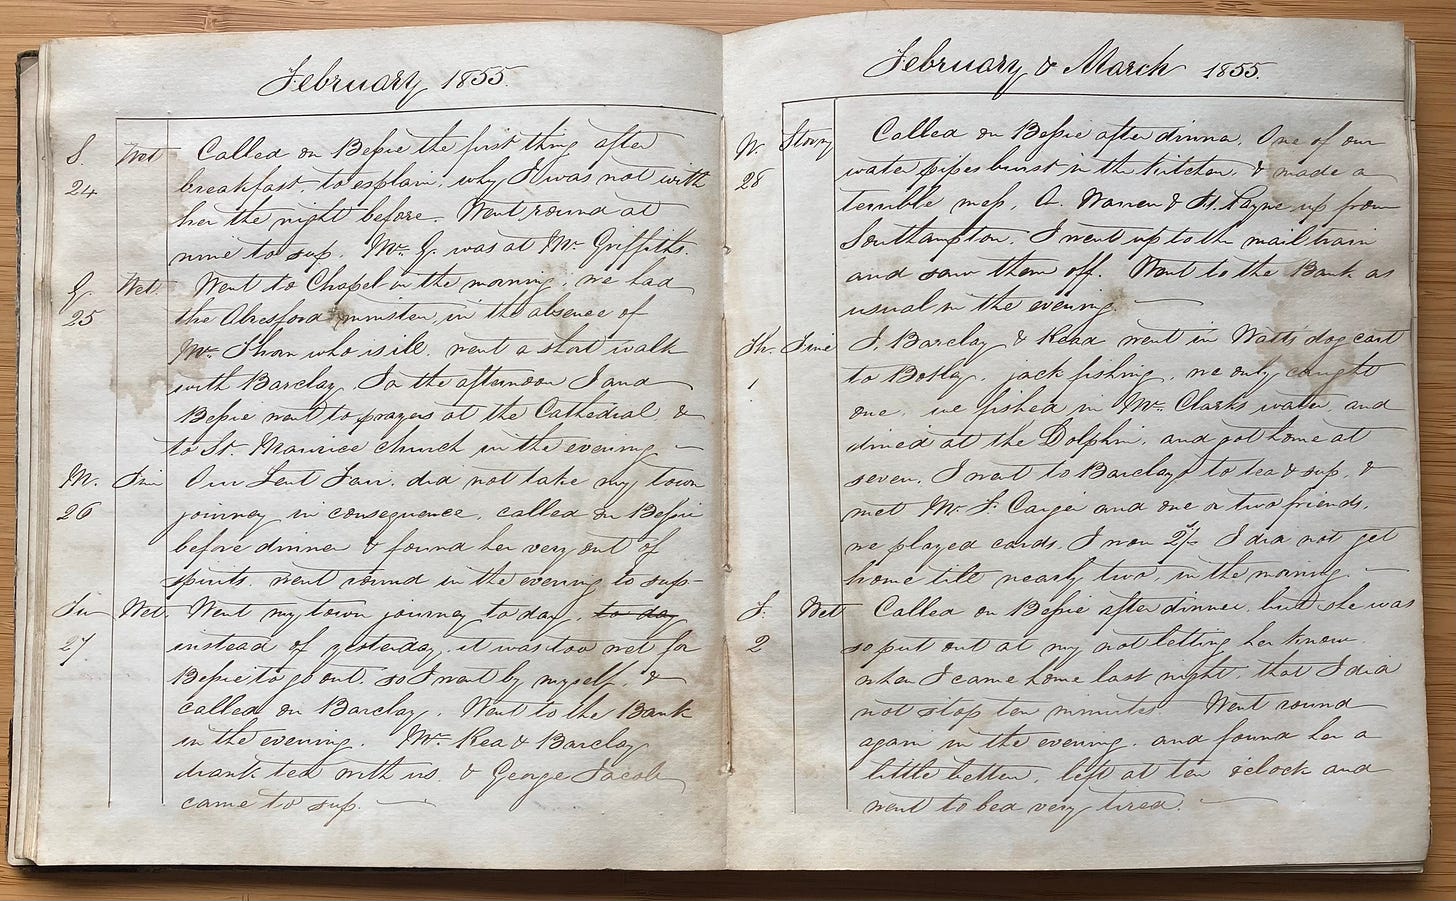 February 1855.
S. Wet Called on Bessie the first thing after
24 breakfast, to explain, why I was not with
her the night before. Went round at
nine to sup. Mr. G. was at Mr. Griffiths.
Wet. Went to Chapel in the morning, we had
25 the Alresford minister, in the absence of
Mr. Thorn who is ill. went a short walk
with Barclay. In the afternoon I and
Bessie went to prayers at the Cathedral &
to St. Maurice church in the evening —
M. Fine Our Lent Fair. did not take my town
26 journey in consequence, called on Bessie
before dinner & found her very out of
spirits. went round in the evening to sup—
Tu Wet Went my town journey to day, to day
27 instead of yesterday, it was too wet for
Bessie to go out, so I went by myself, &
called on Barclay. Went to the Bank
in the evening. Mr. Rea & Barclay
drank tea with us. & George Jacob
came to sup. —
February & March 1855.
W. Stormy Called on Bessie after dinner. One of our
28 water pipes burst in the kitchen, & made a
terrible mess, A. Warren & H. Payne up from
Southampton. I went up to the mail train
and saw them off. Went to the Bank as
usual in the evening. —
Th. Fine I, Barclay & Read went in Watts dog cart
1 to Botley, jack fishing, we only caught
one. we fished in Mr. Clarks water, and
dined at the Dolphin, and got home at
seven. I went to Barclays to tea & sup, &
met Mr. F. Caiger and one or two friends.
we played cards. I won 2/- I did not get
home till nearly two, in the morning. —
F. Wet Called on Bessie after dinner, but she was
2 so put out at my not letting her know
when I came home last night, that I did
not stop ten minutes. Went round
again in the evening, and found her a
little better, left at ten o'clock and
went to bed very tired. —